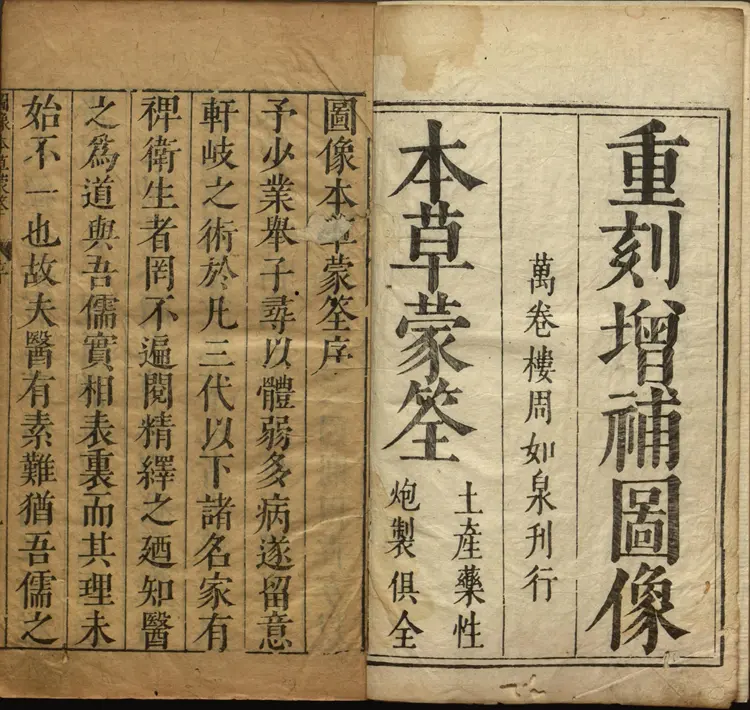 重刻增補圖像
萬卷樓周如泉刊行
本草蒙筌
土產藥性
炮製俱全
圖像本草蒙筌序
予少業舉子尋以體弱多病遂留意
軒岐之術於凡三代以下諸名家有
裨衛生者罔不遍閱精繹之廼知醫
之為道與吾儒實相表裏而其理未
始不一也故夫醫有素難猶吾儒之
圖像本草蒙筌 序